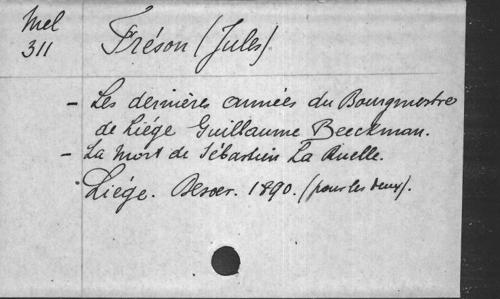 Mel
311
Fréson (Jules)
- Les dernières années du Bourgmestre
de Liége Guillaume Beeckman.
- La Mort de Sébastien La Ruelle.
Liége. Desoer. 1890. (pour les deux).